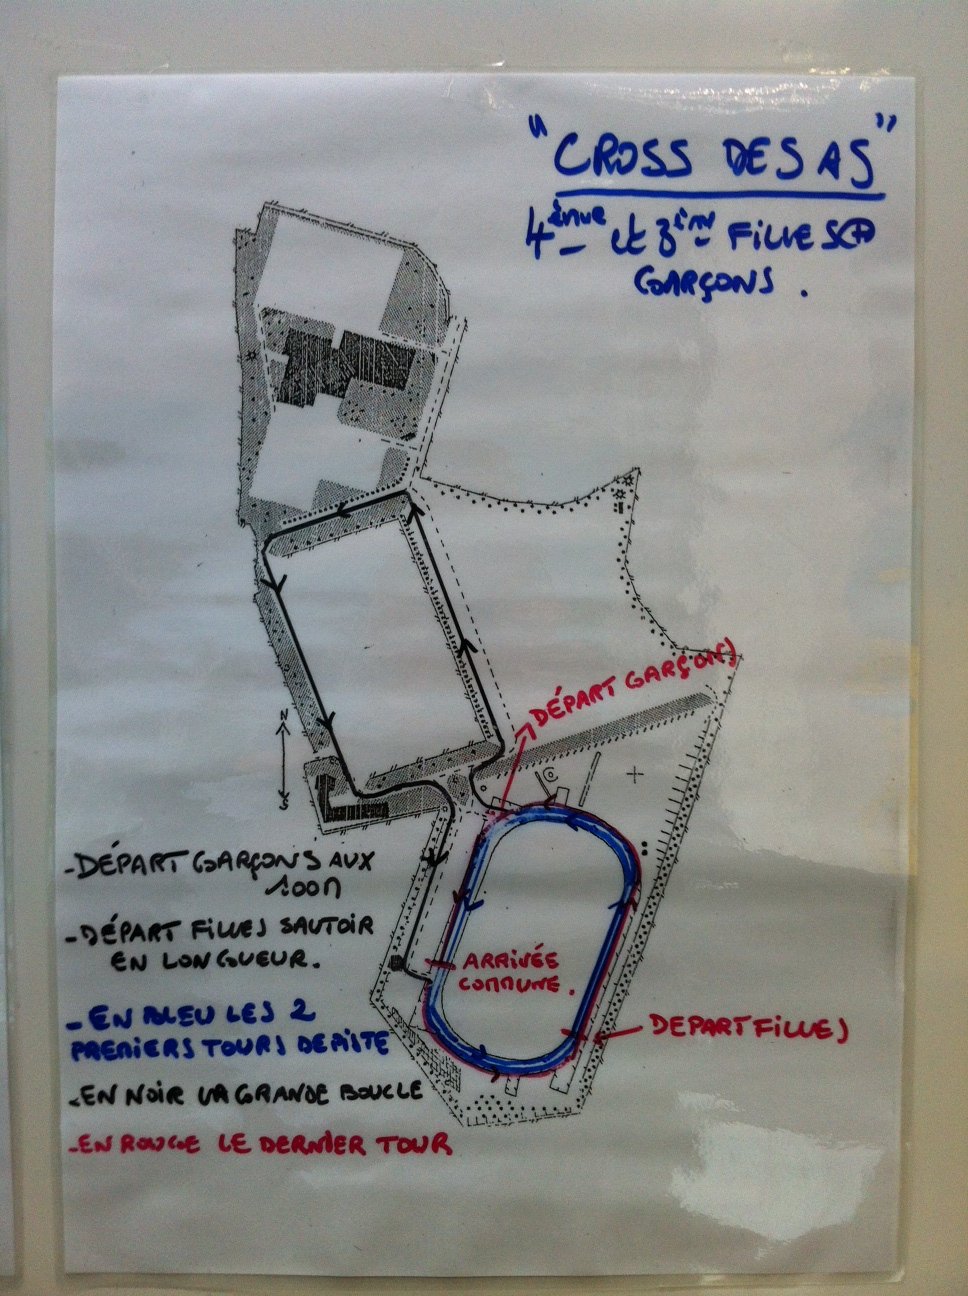 "CROSS DES AS"
4ème et 3ème FILLES ET
GARÇONS.
DÉPART GARÇONS
N
S
-DÉPART GARÇONS AUX
100M
-DÉPART FILLES SAUTOIR
EN LONGUEUR.
ARRIVÉE
COMMUNE.
-EN BLEU LES 2
PREMIERS TOURS DE PISTE
DEPART FILLES
-EN NOIR LA GRANDE BOUCLE
-EN ROUGE LE DERNIER TOUR